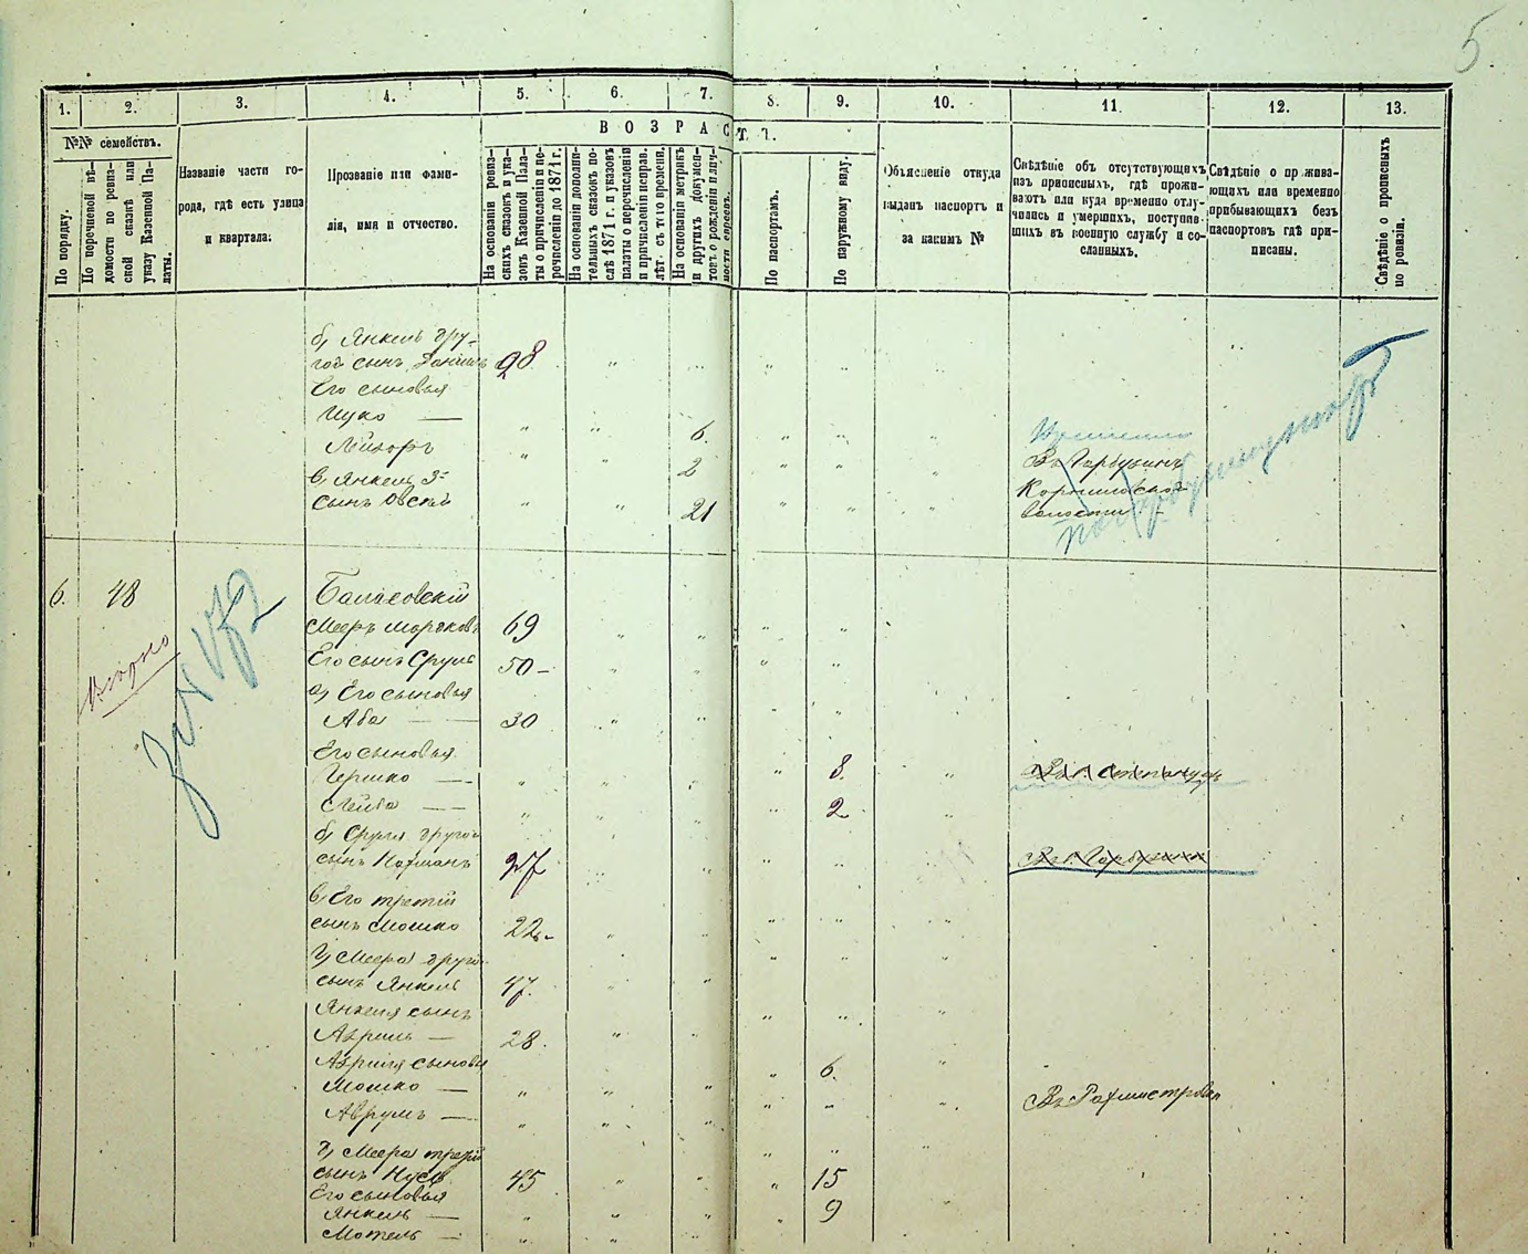 5.
1. 2. 3. 4. 5. 6. 7. 8. 9. 10. 11. 12. 13.
№№ семействъ.
В О З Р А С Т Ъ.
По порядку.
По поречневой вѣ-
домости по ревиз-
ской сказкѣ или
указу Казенной Па-
латы.
Названіе части го-
рода, гдѣ есть улица
и квартала.
Прозваніе или фами-
лія, имя и отчество.
На основаніи ревиз-
скихъ сказокъ и ука-
зовъ Казенной Пала-
ты о причисленіи и пе-
речисленіи до 1871 г.
На основаніи дополни-
тельныхъ сказокъ по-
слѣ 1871 г. и указовъ
палаты о перечисленіи
и причисленіи исправ.
лѣт. съ того времени.
На основаніи метрикъ
и другихъ докумен-
товъ о рожденіи влич-
ности евреевъ.
По паспортамъ.
По наружному виду.
Объясненіе откуда
выданъ паспортъ и
за какимъ №
Свѣдѣніе объ отсутствующихъ
изъ приписныхъ, гдѣ прожи-
ваютъ или куда временно отлу-
чились и умершихъ, поступив-
шихъ въ военную службу и со-
сланныхъ.
Свѣдѣніе о прожива-
ющихъ или временно
прибывающихъ безъ
паспортовъ гдѣ при-
писаны.
Свѣдѣніе о прописныхъ
по ревизіи.
б) Янкель дру-
гой сынъ Даніилъ 28
Его сыновья
Ицко — 6.
Лейзоръ 2
в) Янкель 3-
сынъ Овсѣй 21
Въ Горбузинѣ
Корниловской
волости
6. 48
Балясовскій
Мееръ Мордковъ 69
Его сынъ Сруль 50
а) Его сыновья
Аба — 30
Его сыновья
Гершко — 8.
Лейба — 2
б) Сруля другой
сынъ Нахманъ 27
в) Его третій
сынъ Мошко 22
г) Меера другой
сынъ Янкель 47.
Янкеля сынъ
Азриль — 28.
Азриля сыновья
Мошко — 6.
Аврумъ —
Въ Ротмистровкѣ
д) Меера третій
сынъ Нусь 45
Его сыновья
Янкель — 15
Мотель — 9